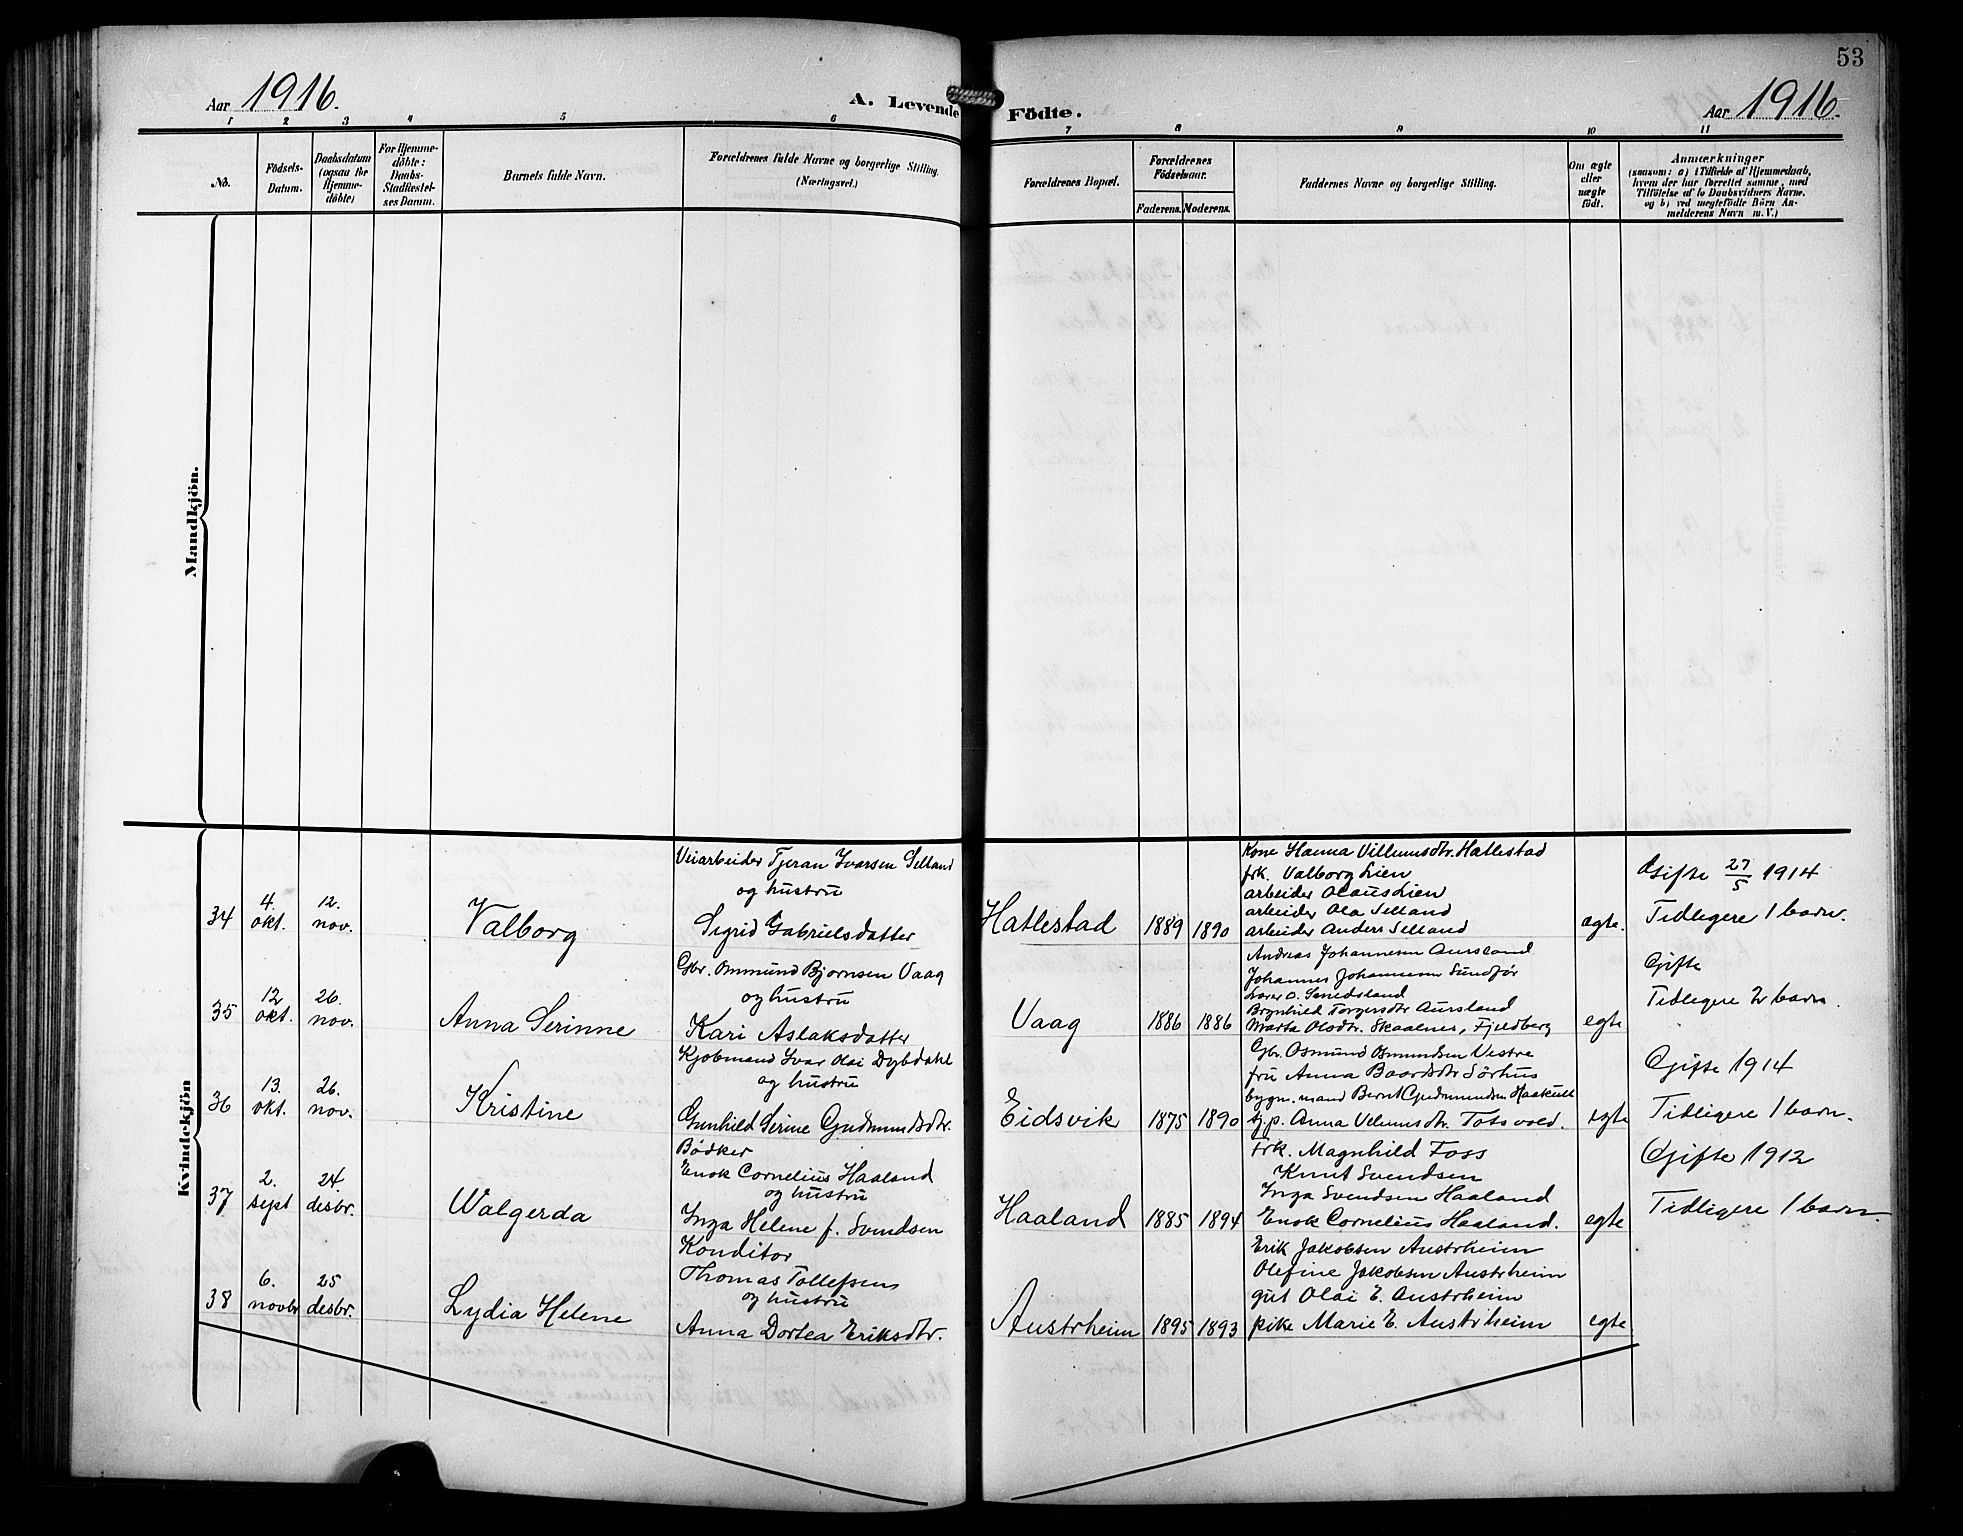 53
Aar 1916.
A. Levende Födte.
Aar 1916.
1 2 3 4 5 6 7 8 9 10 11
No.
Födsels-Datum.
Daabsdatum (ogsaa for Hjemme-döbte)
For Hjemme-döbte: Daabs-Stadfæstel-ses Datum.
Barnets fulde Navn.
Forældrenes fulde Navne og borgerlige Stilling. (Næringsvei.)
Forældrenes Bopæl.
Forældrenes Födselsaar.
Faderens. Moderens.
Faddernes Navne og borgerlige Stilling.
Om ægte eller uægte födt.
Anmærkninger
(saasom: a) i Tilfælde af Hjemmedaab,
hvem der har forrettet samme, med
Tilföielse af to Daabsvidners Navne,
og b) ved uægtefödte Börn An-
melderens Navn m. V.)
Mandkjön.
Kvindekjön
34
4. okt.
12. nov.
Valborg
Veiarbeider Tjeran Ivarsen Selland
og hustru
Sigrid Gabrielsdatter
Hatlestad
1889 1890
Kone Hanna Villumsdtr. Hatlestad
frk. Valborg Lien
arbeider Olaus Lien
arbeider Ola Selland
arbeider Anders Selland
ægte.
Gifte 27/5 1914
Tidligere 1 barn.
35
12 okt.
26. nov.
Anna Serinne
Gbr. Ommund Bjørnsen Vaag
og hustru
Kari Aslaksdatter
Vaag
1886 1886
Andreas Johannesen Aursland
Johannes Johannesen Sundfør
Brynhild Torgersdtr Aursland
Marta Olsdtr. Skaalnes, Fjeldberg
egte
Gifte
Tidligere 2 barn.
36
13. okt.
26. nov.
Kristine
Kjøbmand Ivar Olai Dybdahl
og hustru
Gunhild Serine Gudmundsdtr.
Eidsvik
1875 1890
Gbr. Osmund Osmundsen Vestre
fru Anna Baardsdtr Sørhus
bygn. mand Bernt Gudmundsen Haakull
tj.p. Anna Velumsdtr. Totsvold.
egte
Gifte 1914
Tidligere 1 barn.
37
2. sept
24 desbr.
Walgerda
Bødker
Enok Cornelius Haaland
og hustru
Inga Helene f. Svendsen
Haaland
1885 1894
Frk. Magnhild Foss
Knut Svendsen
Inga Svendsen Haaland
Enok Cornelius Haaland.
egte
Gifte 1912
Tidligere 1 barn.
38
6. novbr
25 desbr.
Lydia Helene
Konditor
Thomas Tollefsen
og hustru
Anna Dortea Eriksdtr.
Austrheim
1895 1893
Erik Jakobsen Austrheim
Olefine Jakobsen Austrheim
gut Olai E. Austrheim
pike Marie E. Austrheim
egte